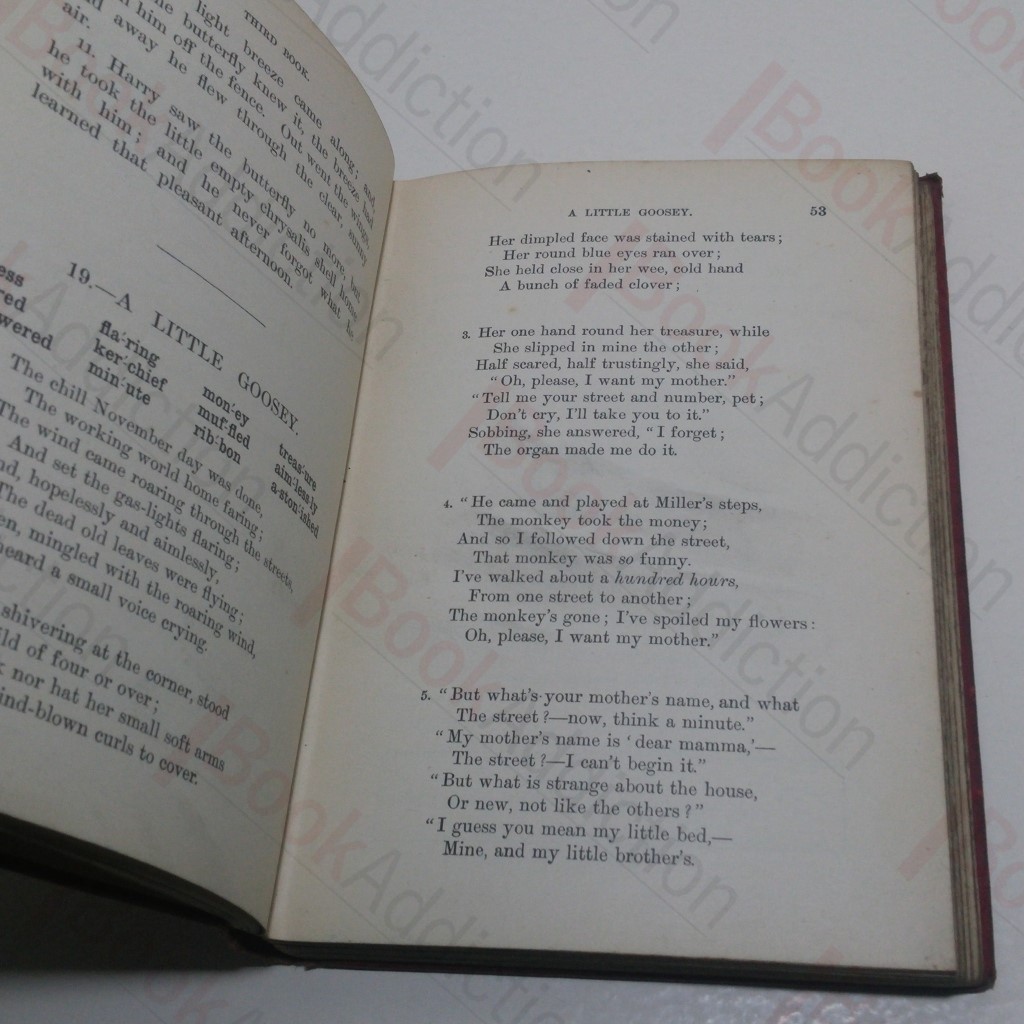 THIRD BOOK.
light breeze came along; and
he butterfly knew it, the breeze had
him off the fence. Out went the wings,
away he flew through the clear, sunny
air.
11. Harry saw the butterfly no more, but
he took the little empty chrysalis shell home
with him; and he never forgot what he
learned that pleasant afternoon.
19.—A LITTLE GOOSEY.
fla·ring mon·ey treas·ure
ker·chief muf·fled aim·less·ly
min·ute rib·bon a·ston·ished
The chill November day was done,
The working world home faring;
The wind came roaring through the streets,
And set the gas-lights flaring;
hopelessly and aimlessly,
The dead old leaves were flying;
en, mingled with the roaring wind,
heard a small voice crying.
shivering at the corner, stood
ild of four or over;
nor hat her small soft arms
ind-blown curls to cover.
A LITTLE GOOSEY. 53
Her dimpled face was stained with tears;
Her round blue eyes ran over;
She held close in her wee, cold hand
A bunch of faded clover;
3. Her one hand round her treasure, while
She slipped in mine the other;
Half scared, half trustingly, she said,
"Oh, please, I want my mother."
"Tell me your street and number, pet;
Don't cry, I'll take you to it."
Sobbing, she answered, "I forget;
The organ made me do it.
4. "He came and played at Miller's steps,
The monkey took the money;
And so I followed down the street,
That monkey was so funny.
I've walked about a hundred hours,
From one street to another;
The monkey's gone; I've spoiled my flowers:
Oh, please, I want my mother."
5. "But what's your mother's name, and what
The street?—now, think a minute."
"My mother's name is 'dear mamma,'—
The street?—I can't begin it."
"But what is strange about the house,
Or new, not like the others?"
"I guess you mean my little bed,—
Mine, and my little brother's.
Book Addiction